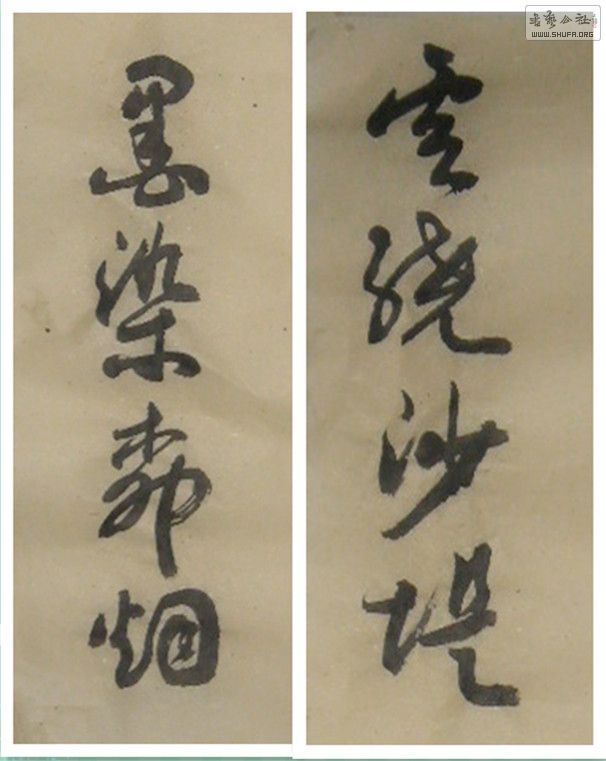 雲繞沙堤
墨染柳烟
书艺公社
WWW.SHUFA.ORG